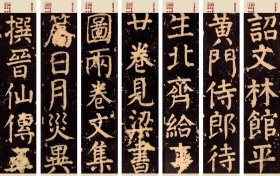 撰晉仙傳五
篇日月災異
圖兩卷文集
廿卷見梁書
生北齊給事
黃門侍郎待
詔文林館平